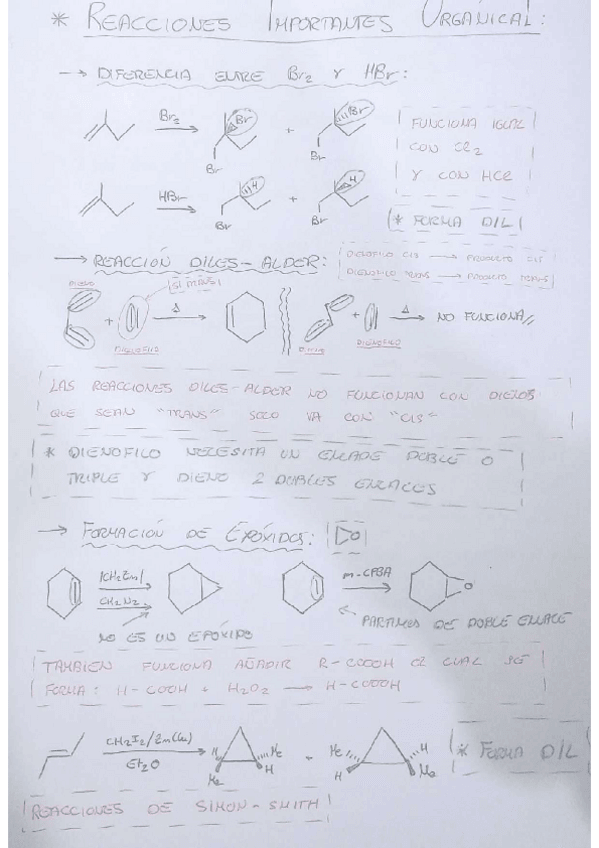 * REACCIONES IMPORTANTES ORGÁNICAI:
→ DIFERENCIA ENTRE Br2 Y HBr:
Br2
Br
Br
+
Br
Br
FUNCIONA IGUAL
CON Cl2
Y CON HCl
HBr
H
Br
+
H
Br
* FORMA D/L
→ REACCIÓN DILES-ALDER:
DIENOFILO CIS → PRODUCTO CIS
DIENOFILO TRANS → PRODUCTO TRANS
DIENO
+
DIENOFILO
Δ
+
DIENOFILO
Δ
NO FUNCIONA//
LAS REACCIONES DILES-ALDER NO FUNCIONAN CON DIENOS
QUE SEAN "TRANS" SOLO VA CON "CIS"
* DIENOFILO NECESITA UN ENLACE DOBLE O
TRIPLE Y DIENO 2 DOBLES ENLACES
→ FORMACIÓN DE EPÓXIDOS:
O
CH2N2
m-CPBA
O
NO ES UN EPÓXIDO
PARTIMOS DE DOBLE ENLACE
TAMBIEN FUNCIONA AÑADIR R-COOOH EL CUAL SE
FORMA: H-COOH + H2O2 → H-COOOH
CH2I2/Zn(Cu)
Et2O
H
Me
Me
H
Me
H
H
Me
* FORMA D/L
REACCIONES DE SIMON-SMITH